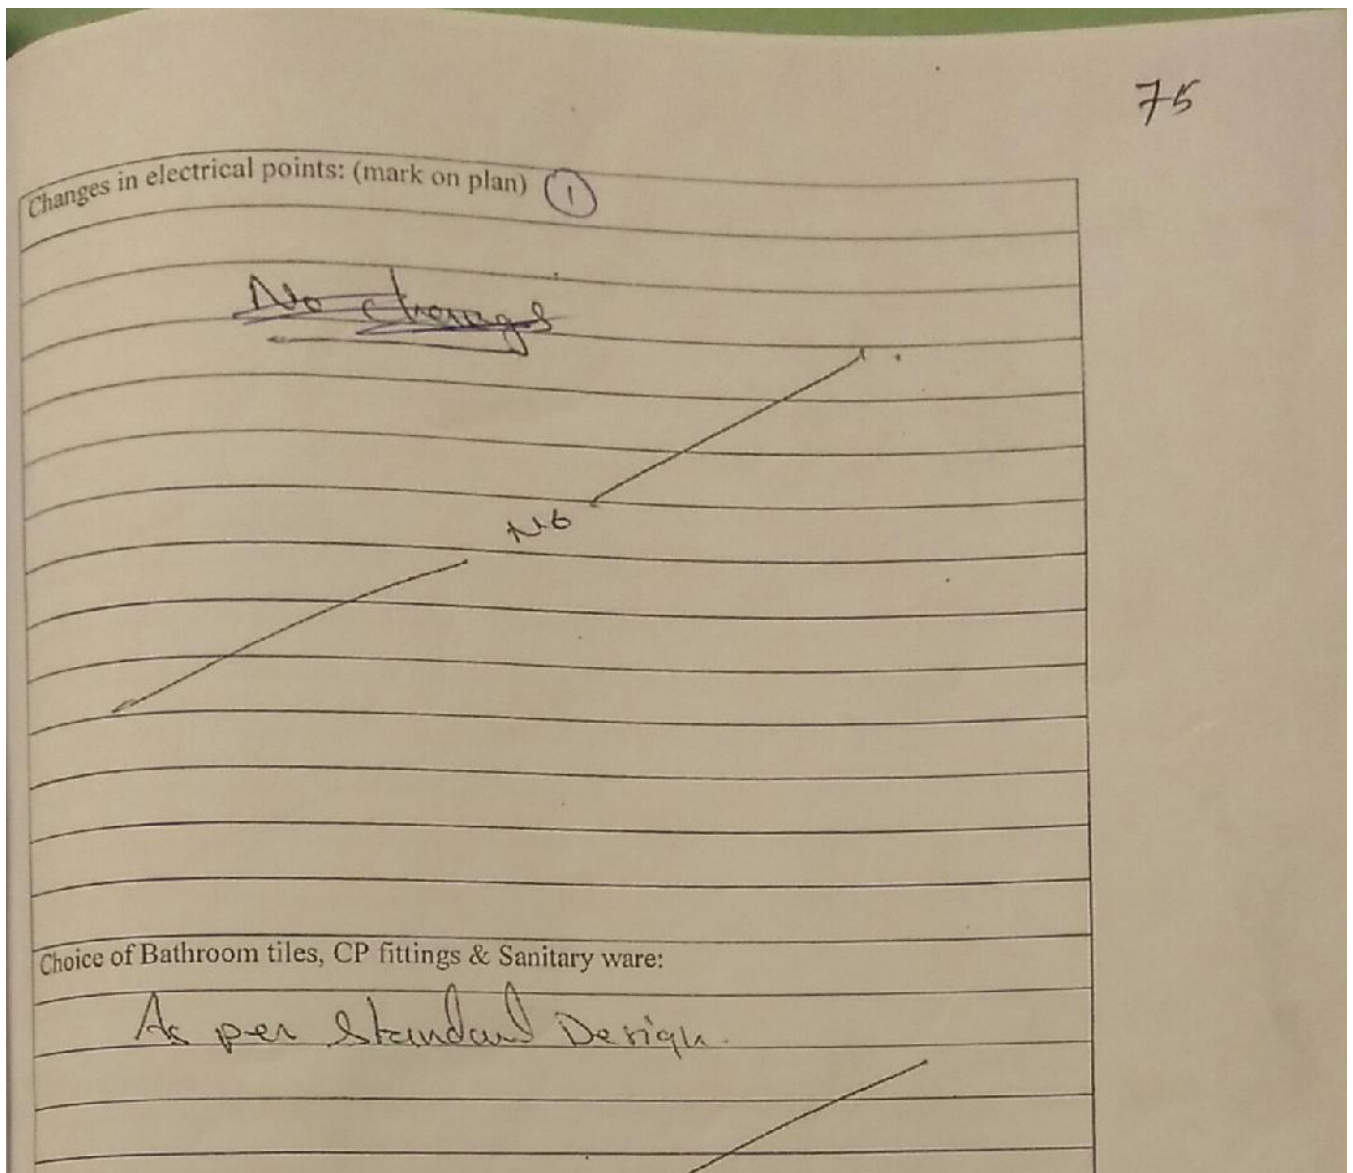 75
Changes in electrical points: (mark on plan) 1
No changes
No
Choice of Bathroom tiles, CP fittings & Sanitary ware:
As per Standard Design.